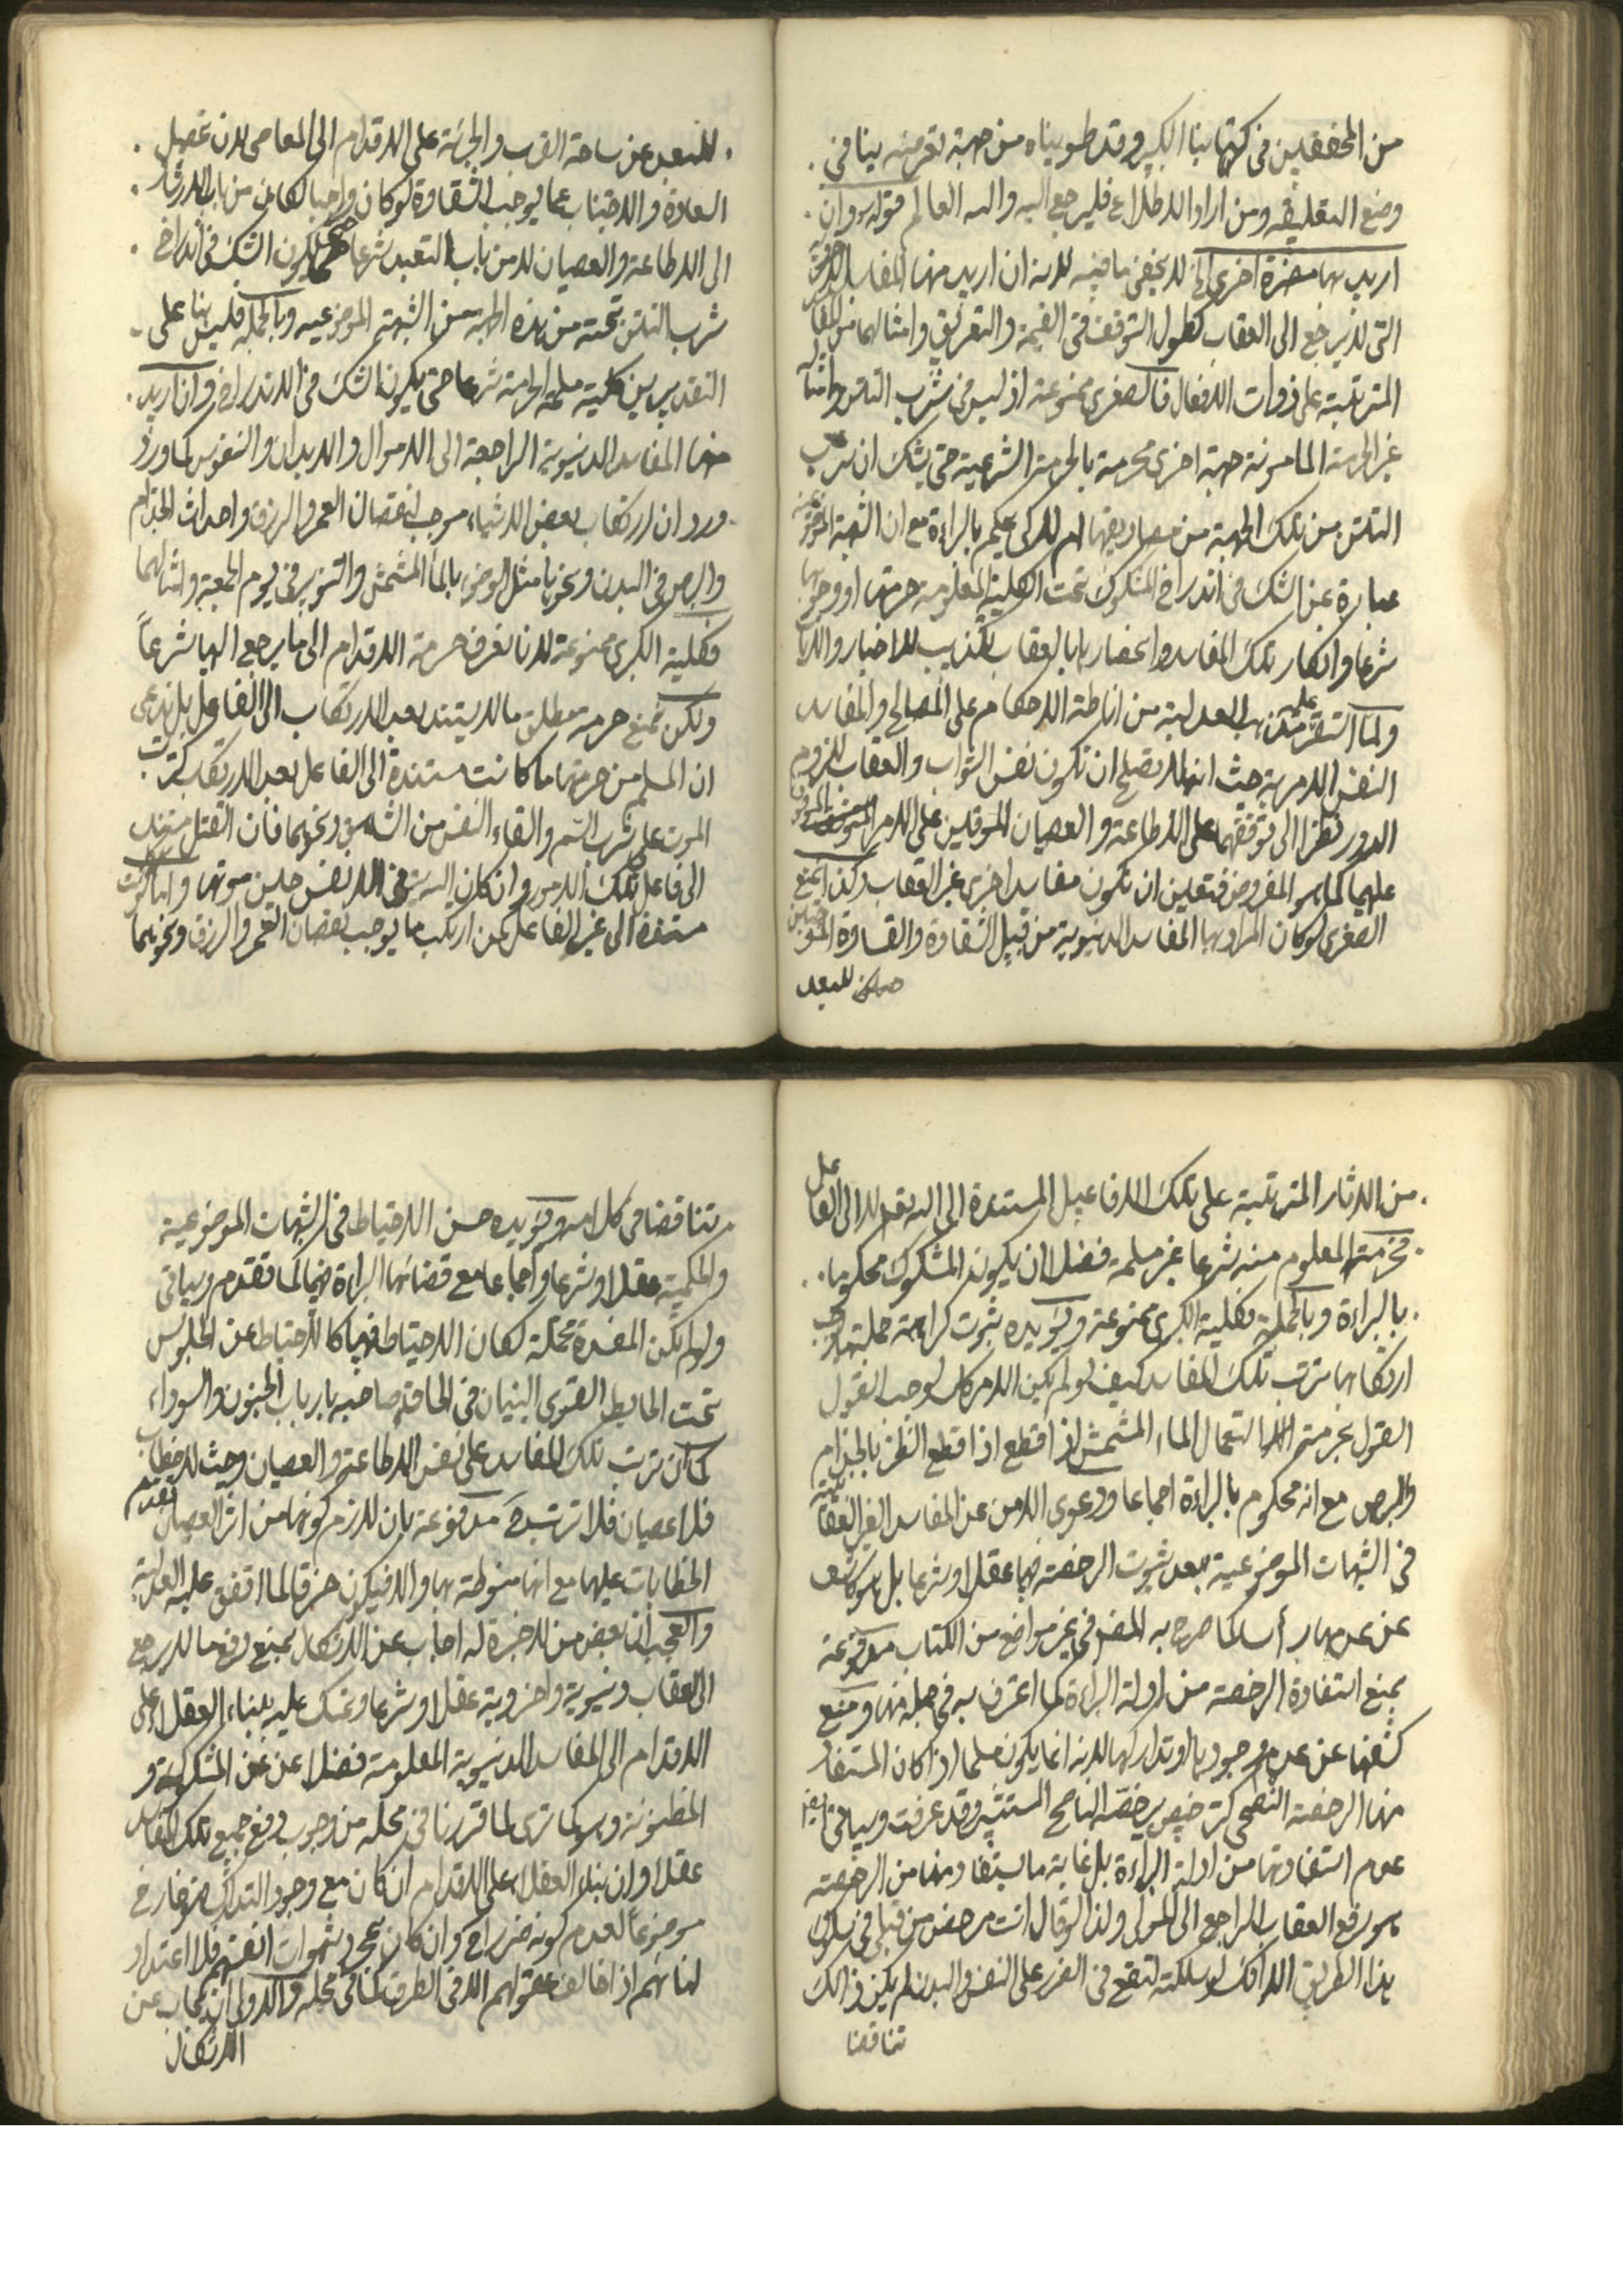 من المحققين في كتابنا الكبير وقد طويناه من جهة تعرضه ينافي
وضع التعليقه ومن اراد الاطلاع فليرجع اليه والله العالم قوله وان
اريد بها مضرة اخرى الخ لا يخفى ما فيه لانه ان اريد منها المفاسد الاخروية
التي لا يرجع الى العقاب كطول التوقف في القيمة والتعريق وامثالهما من المفاسد
المترتبة على ذوات الافعال فالصغرى ممنوعة اذ ليس في شرب التتن وامثاله
غير الحرمة المامونة جهة اخرى محرمة بالحرمة الشرعية حتى يشك ان شرب
التتن من تلك الجهة من مصاديقها ام لا كي يحكم بالبراءة مع ان الشبهة الموضوعية
عبارة عن الشك في اندراج المشكوك تحت الكلية المعلومة حرمتها او وجوبها
شرعا وانكار تلك المفاسد وانحصارها بالعقاب تكذيب للاخبار والايات
ولما استقر عليه مذهب العدلية من اناطة الاحكام على المصالح والمفاسد
النفس الامرية حيث انها لا تصلح ان تكون نفس الثواب والعقاب للزوم
الدور نظرا الى توقفهما على الاطاعة والعصيان الموقوفين على الامر الموقوف
عليهما كما هو المفروض فتعين ان تكون مفاسد اخرى غير العقاب وكذا يمنع
الصغرى لو كان المراد بها المفاسد الدنيوية من قبيل الشقاوة والقساوة الموجبتين
للبعد
للتبعد عن ساحة القرب والجرئة على الاقدام الى المعاصي لان تحصيل
السعادة والاجتناب عما يوجب الشقاوة لو كان واجبا لكان من باب الارشاد
الى الاطاعة والعصيان لا من باب التعبد شرعا حتى يكون الشك في اندراج
شرب التتن تحته من هذه الجهة من الشبهة الموضوعيه وبالجملة فليس هنا على
التقديرين كلية مسلمة الحرمة شرعا حتى يكون الشك في الاندراج وان اريد
منها المفاسد الدنيوية الراجعة الى الاموال والابدان والنفوس كما ورد
ورد ان ارتكاب بعض الاشياء موجب لنقصان العمر والرزق واحداث الجذام
والبرص في البدن ونحوها مثل الوضوء بالماء المشمش والتنوير في يوم الجمعة وامثالهما
فكلية الكبرى ممنوعة لانا نعرف حرمة الاقدام الى ما يرجع اليها شرعاً
ولكن نمنع حرمة مطلق ما لا يستند بعد الارتكاب الى الفاعل بل ندعي
ان المسلم من حرمتها ما كانت مستندة الى الفاعل بعد الارتكاب كترتب
الموت على شرب السم والقاء النفس من الشاهق ونحوهما فان القتل مستند
الى فاعل تلك الامور وان كان الله يتوفى الانفس حين موتها واما لو كانت
مستندة الى غير الفاعل كمن ارتكب ما يوجب نقصان العمر والرزق ونحوهما
من الاثار المترتبة على تلك الافاعيل المستندة الى الله تعالى لا الى الفاعل
فحرمة المعلوم منه شرعا غير مسلمة فضلا ان يكون المشكوك محكوما
بالبراءة وبالجملة فكلية الكبرى ممنوعة ويؤيده ثبوت كراهة جملة مما يوجب
ارتكابها ترتب تلك المفاسد كيف لو لم يكن الامر كك لوجب القول
القول بحرمة استعمال الماء المشمش اذا قطع الظن بالجذام
والبرص مع انه محكوم بالبراءة اجماعا ودعوى الامن عن المفاسد الغير العقابية
في الشبهات الموضوعية بعد ثبوت الرخصة فيها عقلا وشرعا بل هو كاشف
عن عدمها رأسا كما صرح به المص في غير مواضع من الكتاب مدفوعة
بمنع استفادة الرخصة من ادلة البراءة كما اعترف به في جملة منها ومنع
كشفها عن عدم وجودها او تداركها لانه انما يكون مسلما اذا كان المستفاد
منها الرخصة النصحي كترخيص يرخصه الناصح المستنبه وقد عرفت وسياتي ايضا
عدم استفادتها من ادلة البراءة بل غاية ما يستفاد منها من الرخصة
هو رفع العقاب الراجع الى المولى ولذا لو قال انت مرخص من قبلي في سلوك
هذا الطريق الا انك لو سلكته لتقع في الضرر على النفس والبدن لم يكن ذالك
تناقضا
تناقضا في كلامه ويؤيده حسن الاحتياط في الشبهات الموضوعية
والحكمية عقلا وشرعا واجماعا مع قضائها البراءة فيها كما تقدم وسياتي
ولو لم تكن المفسدة محتملة لكان الاحتياط فيها كالاحتياط عن الجلوس
تحت الحايط القوي البنيان في الحاق صاحبه بارباب الجنون والسوداء
كما ان ترتب تلك المفاسد على نفس الاطاعة والعصيان وحيث لا خطاب
فلا عصيان فلا ترتب ح مدفوعة بان لازم كونها من اثر العصيان تقدم
الخطابات عليها مع انها منوطة بها والا فيكون خرقا لما اتفق عليه العدلية
والعجب ان بعض من لا خبرة له اجاب عن الاشكال بمنع دفع ما لا يرجع
الى العقاب دنيوية واخروية عقلا وشرعا وتمسك عليه ببناء العقلاء على
الاقدام الى المفاسد الدنيوية المعلومة فضلا عن المشكوكة و
المظنونة وهو كما ترى لما قررنا في محله من وجوب دفع جميع تلك المفاسد
عقلا وان بناء العقلاء على الاقدام ان كان مع وجود التدارك فهو خارج
موضوعاً لعدم كونه ضررا ح وان كان بمجرد شهوات انفسهم فلا اعتداد
لبنائهم اذا خالف عقولهم الا في الطرق كما في محله والاولى ان يجاب عن
الاشكال